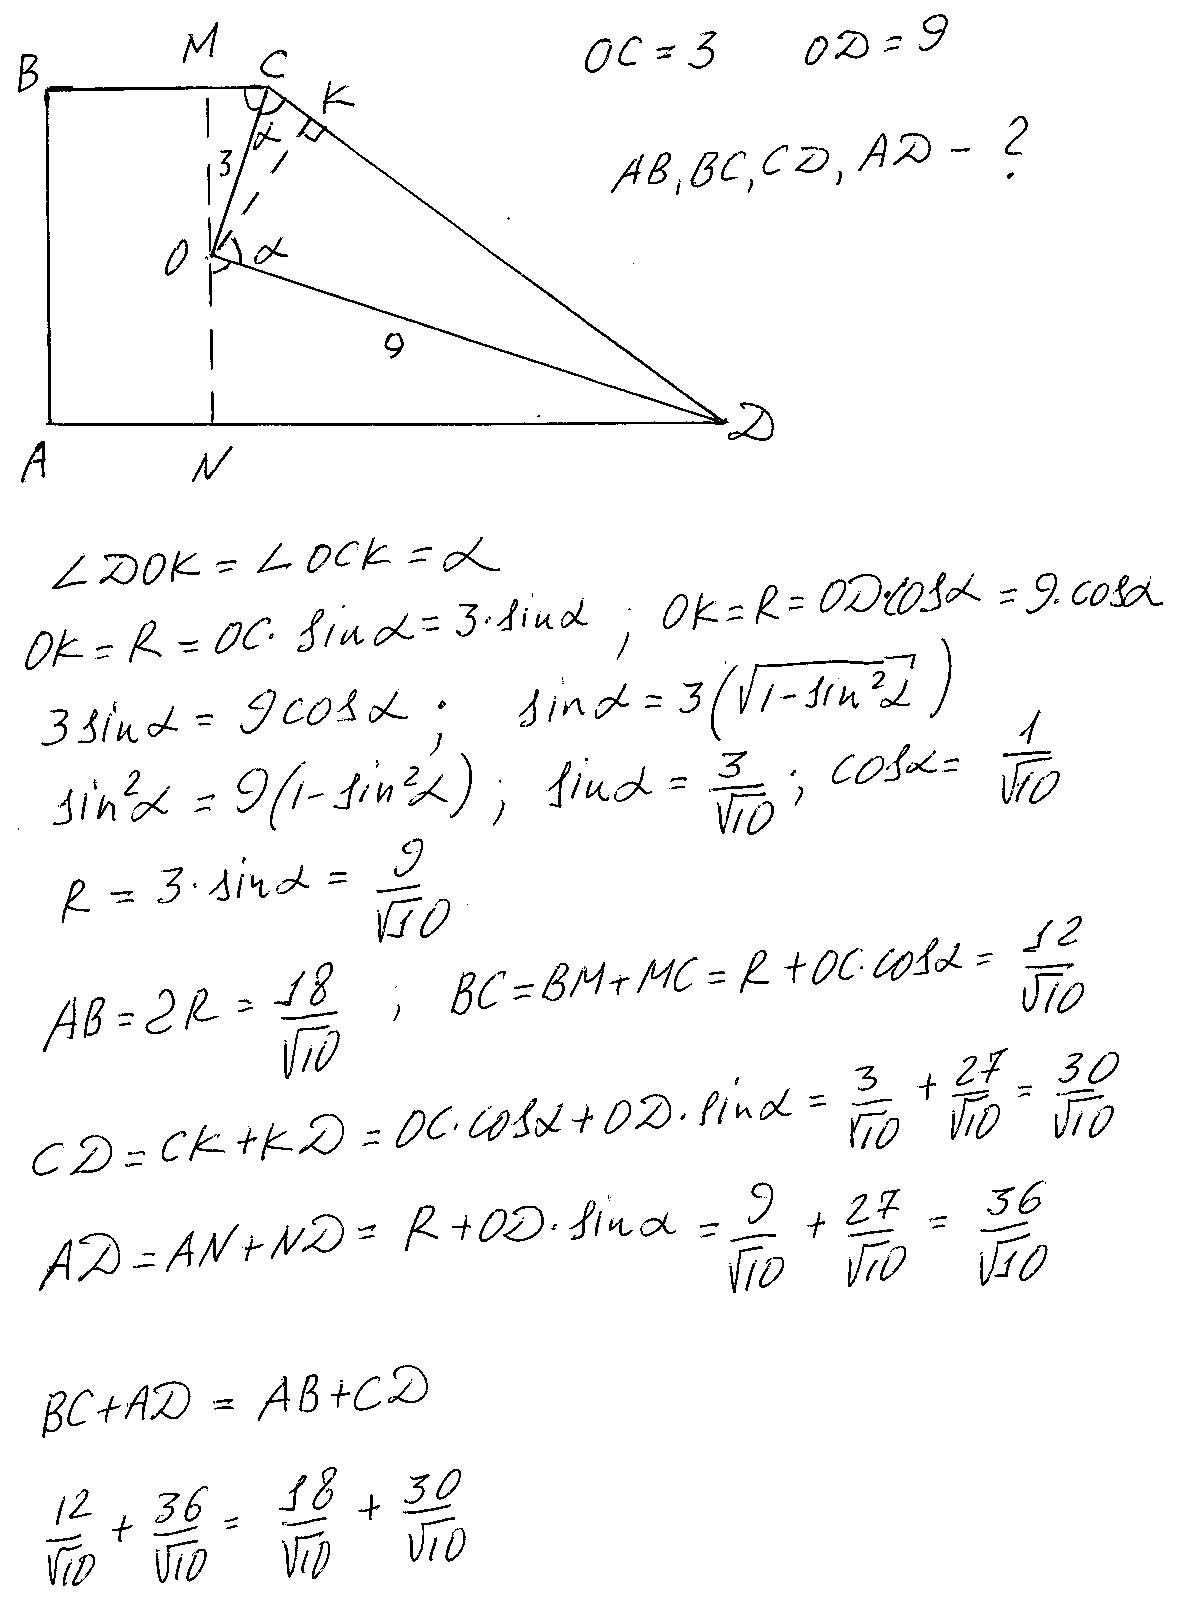 M
B
C
K
OC = 3 OD = 9
α
3
AB, BC, CD, AD – ?
O
α
9
D
A
N
∠DOK = ∠OCK = α
OK = R = OC · sinα = 3 · sinα ; OK = R = OD · cosα = 9 · cosα
3 sinα = 9 cosα ; sinα = 3(√(1 – sin²α))
sin²α = 9(1 – sin²α) ; sinα = 3/√10 ; cosα = 1/√10
R = 3 · sinα = 9/√10
AB = 2R = 18/√10 , BC = BM + MC = R + OC · cosα = 12/√10
CD = CK + KD = OC · cosα + OD · sinα = 3/√10 + 27/√10 = 30/√10
AD = AN + ND = R + OD · sinα = 9/√10 + 27/√10 = 36/√10
BC + AD = AB + CD
12/√10 + 36/√10 = 18/√10 + 30/√10